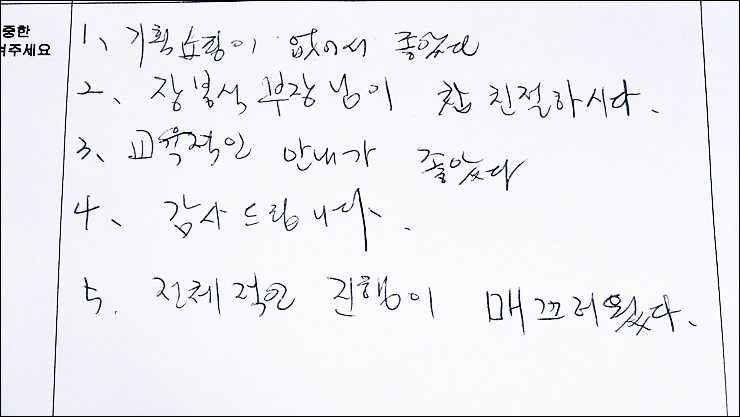 중한
려주세요
1、기획쇼핑이 없어서 좋았다
2、장봉석 부장님이 참 친절하시다.
3、교육적인 안내가 좋았다
4、감사드립니다.
5. 전체적인 진행이 매끄러웠다.